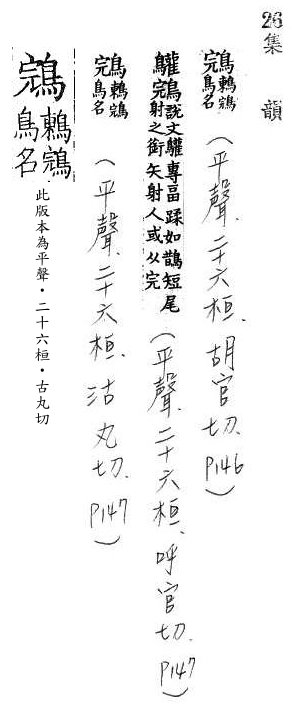 26集　韻
鵍䴋鵍鳥名（平聲、二十六桓、胡官切、P146）
鸛鵍說文鸛專畐蹂如鵲短尾射之銜矢射人或从完（平聲、二十六桓、呼官切、P147）
鵍鳥名（平聲、二十六桓、沽丸切、P147）
鵍鳥名
此版本為平聲・二十六桓・古丸切